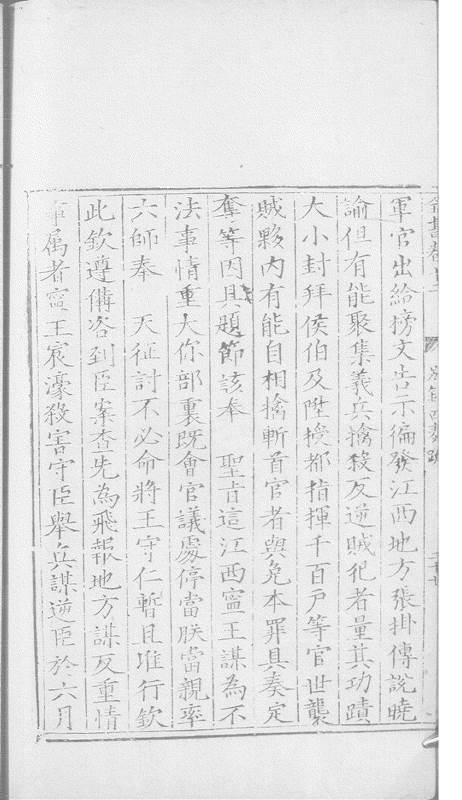 軍官出給榜文告示徧發江西地方張掛傳說曉
諭但有能聚集義兵擒殺反逆賊犯者量其功蹟
大小封拜侯伯及陞授都指揮千百戶等官世襲
賊夥內有能自相擒斬首官者與免本罪具奏定
奪等因具題節該奉　聖旨這江西寧王謀為不
法事情重大你部裏既會官議處停當朕當親率
六師奉　天征討不必命將王守仁暫且准行欽
此欽遵備咨到臣案查先為飛報地方謀反重情
事属者寧王宸濠殺害守臣舉兵謀逆臣於六月